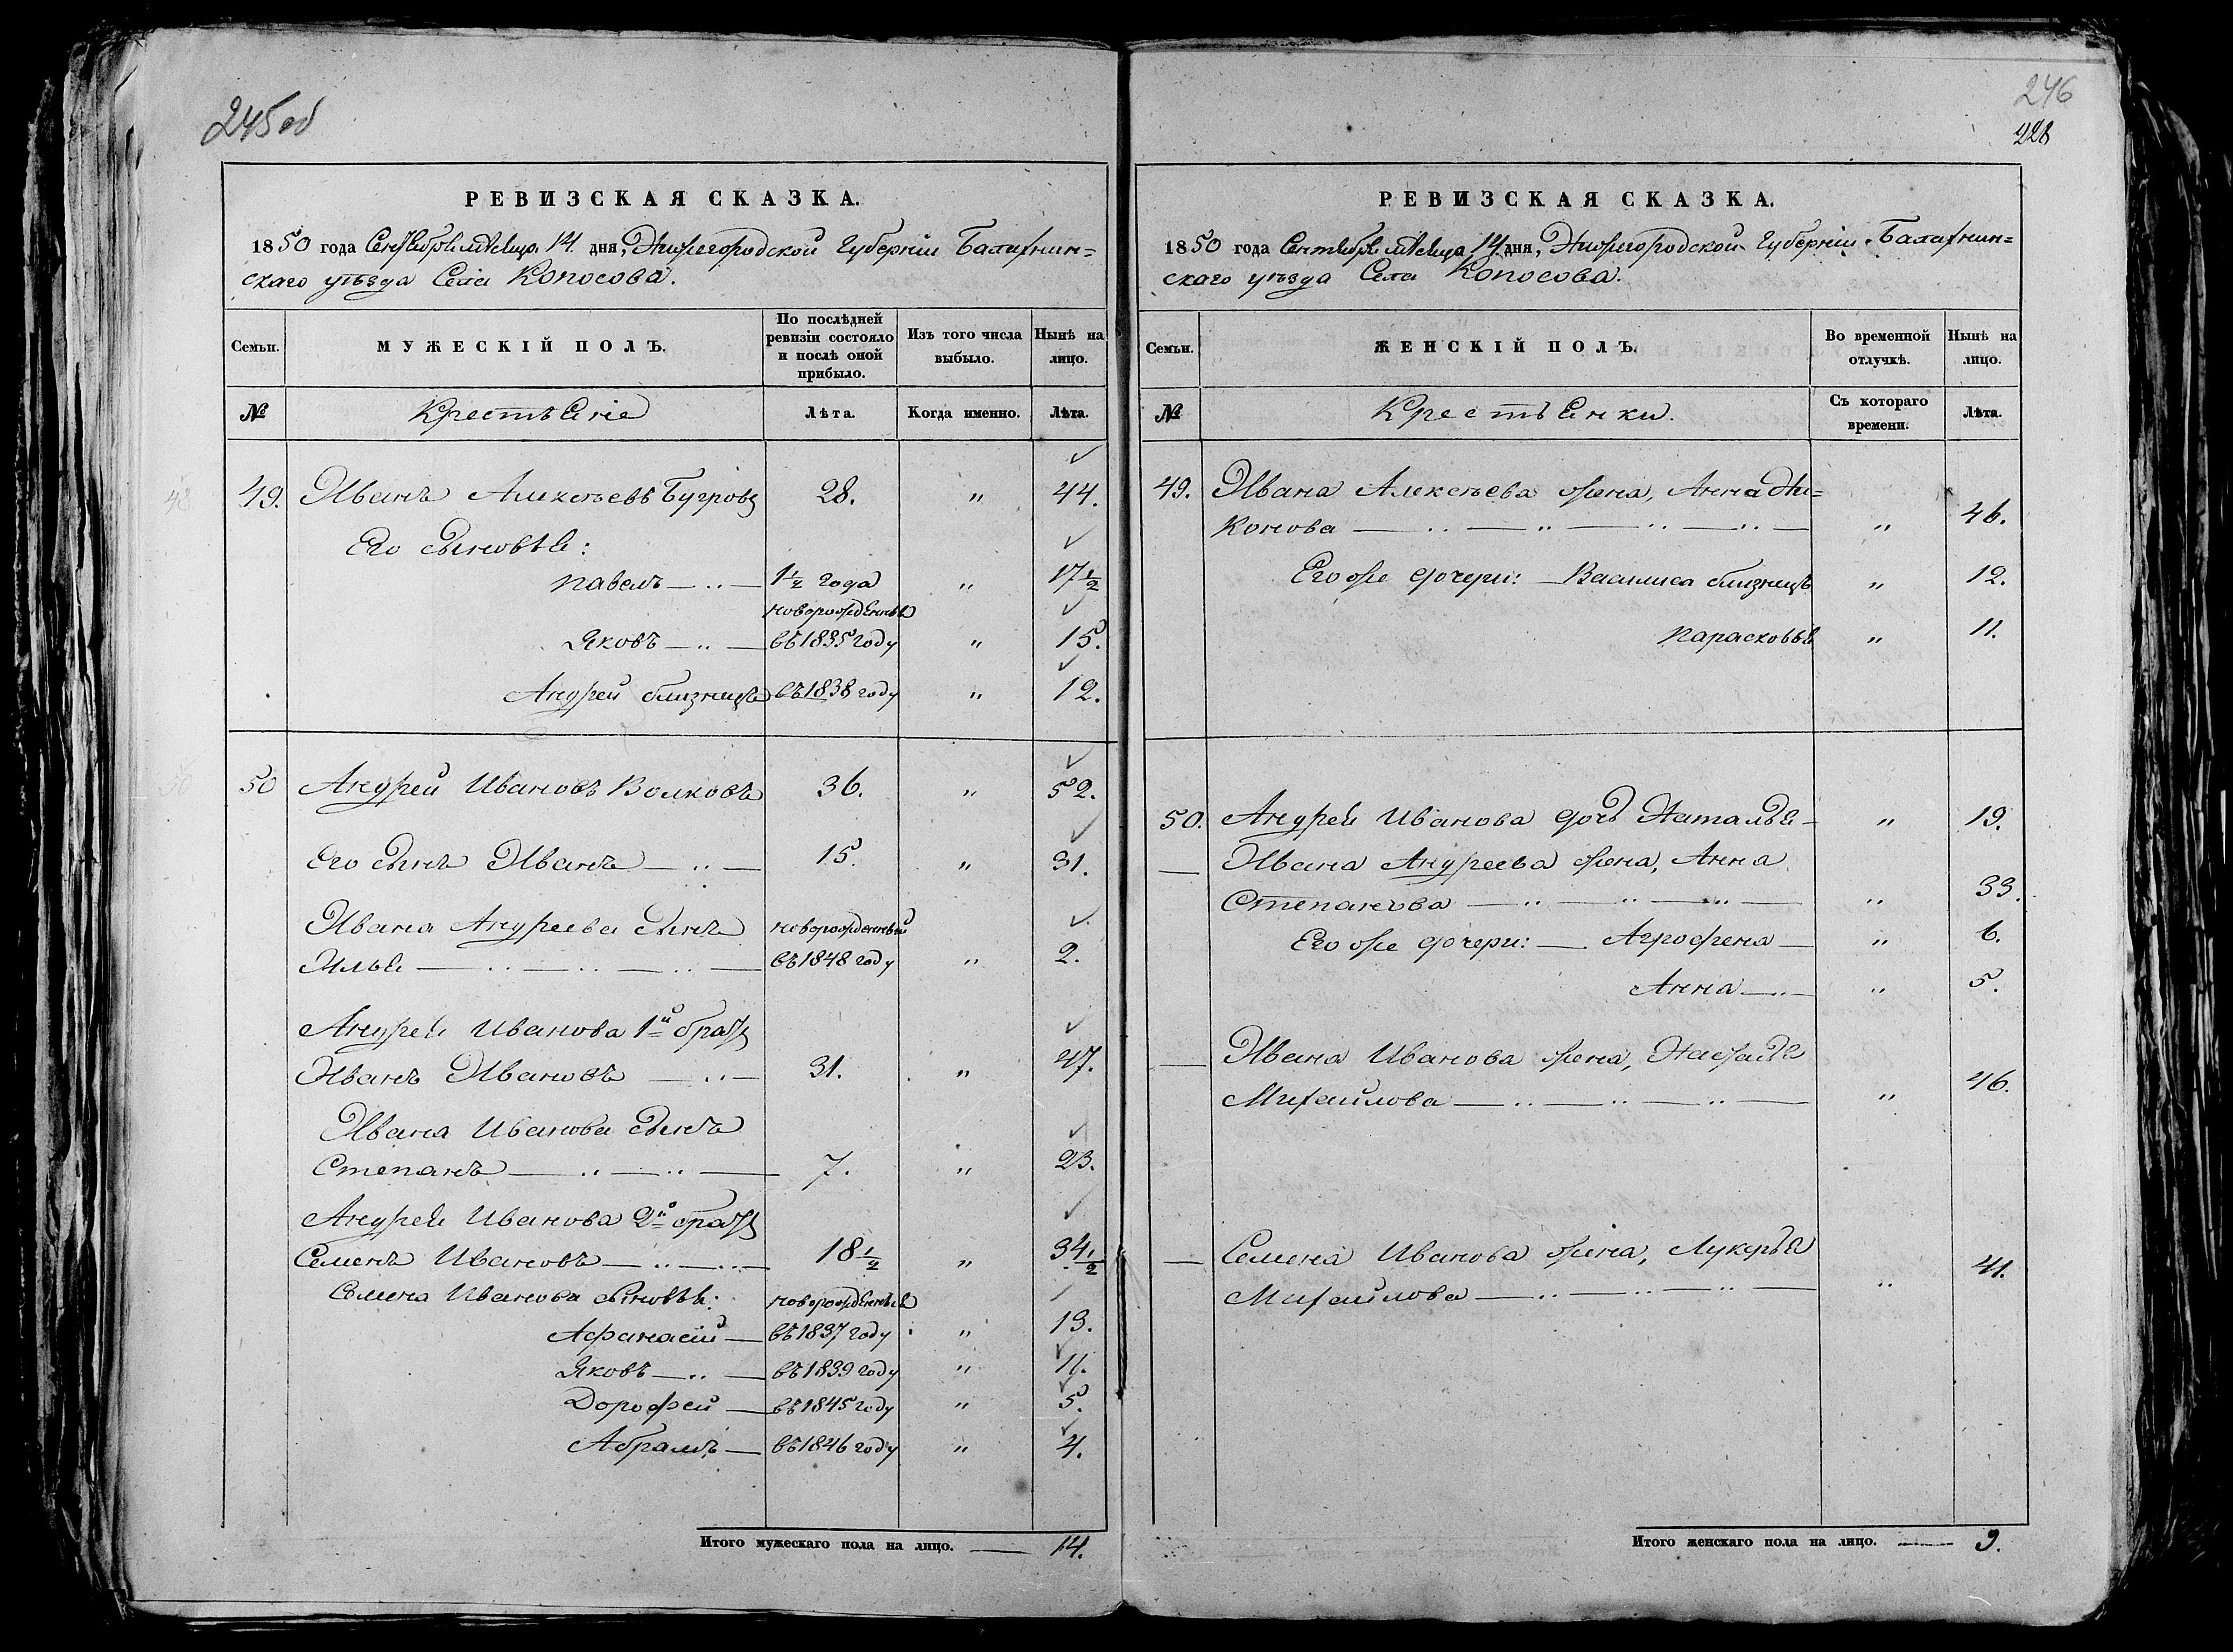 245 об
РЕВИЗСКАЯ СКАЗКА.
1850 года Сентября месяца 14 дня, Нижегородской Губернии Балахнин=
скаго уѣзда Села Копосова.
Семьи.
МУЖЕСКІЙ ПОЛЪ.
По послѣдней ревизіи состояло и послѣ оной прибыло.
Изъ того числа выбыло.
Нынѣ на лицо.
№ Крестьяне Лѣта. Когда именно. Лѣта.
49. Иванъ Алексѣевъ Бугровъ 28. " 44.
Его сыновья:
Павелъ — 1½ года " 17½
новорожденные
Яковъ — въ 1835 году " 15.
Андрей близнецъ въ 1838 году " 12.
50 Андрей Ивановъ Волковъ 36. " 52.
Его сынъ Иванъ — 15. " 31.
Ивана Андреева сынъ новорожденный
Илья — въ 1848 году " 2.
Андрея Иванова 1й братъ
Иванъ Ивановъ — 31. " 47.
Ивана Иванова сынъ
Степанъ — 7. " 23.
Андрея Иванова 2й братъ
Семенъ Ивановъ — 18½ " 34½
Семена Иванова сыновья: новорожденные
Афанасій — въ 1837 году " 13.
Яковъ — въ 1839 году " 11.
Дорофей — въ 1845 году " 5.
Абрамъ — въ 1846 году " 4.
Итого мужескаго пола на лицо. — 14.
246
228
РЕВИЗСКАЯ СКАЗКА.
1850 года Сентября месяца 14 дня, Нижегородской Губерніи Балахнин=
скаго уѣзда Села Копосова.
Семьи.
ЖЕНСКІЙ ПОЛЪ.
Во временной отлучкѣ.
Нынѣ на лицо.
№ Крестьянки. Съ котораго времени. Лѣта.
49. Ивана Алексѣева жена, Анна Ни=
конова — " 46.
Его же дочери: — Василиса близнецъ " 12.
Парасковья " 11.
50. Андрея Иванова дочь Наталья — " 19.
— Ивана Андреева жена, Анна
Степанова — " 33.
Его же дочери: — Агрофена — " 6.
Анна — " 5.
— Ивана Иванова жена, Настасья
Михайлова — " 46.
— Семена Иванова жена, Лукерья
Михайлова — " 41.
Итого женскаго пола на лицо. — 9.